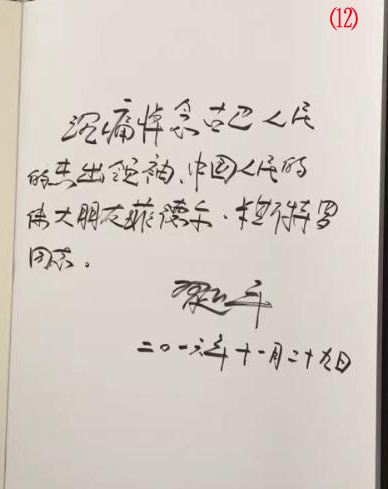 (12)
沉痛悼念古巴人民
的杰出领袖、中国人民的
伟大朋友菲德尔·卡斯特罗
同志。
习近平
二〇一六年十一月二十九日